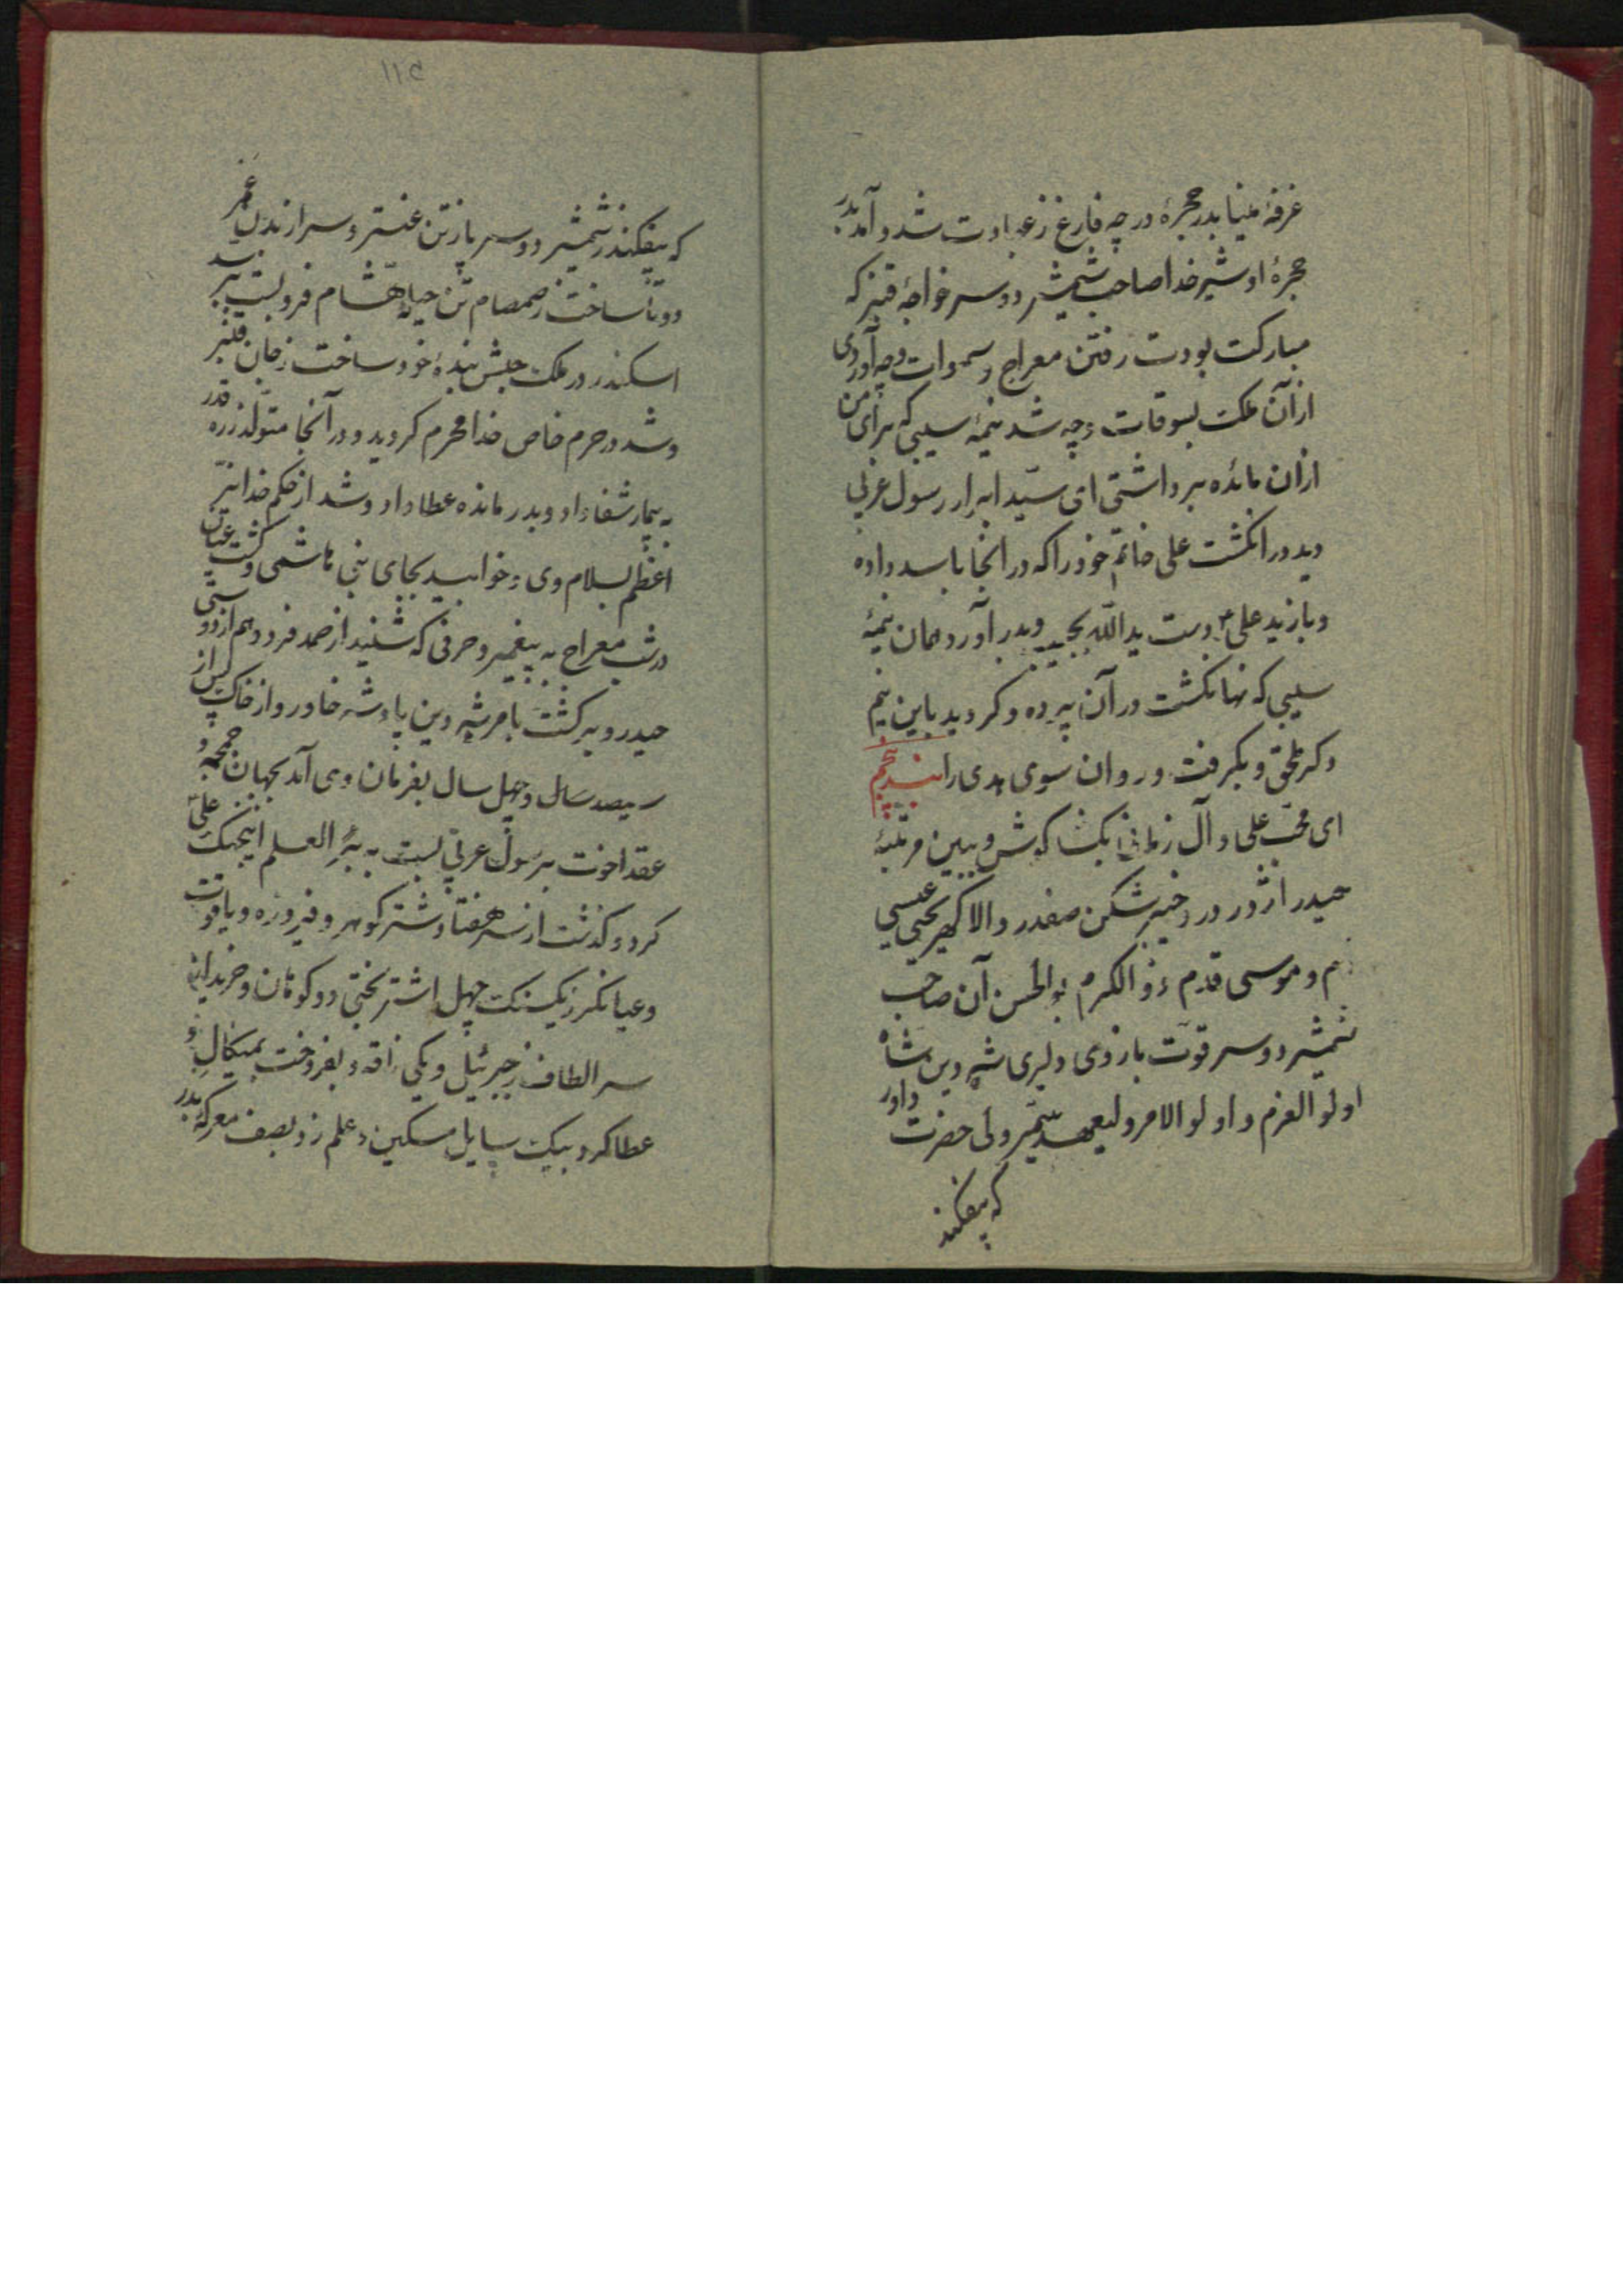 غرفهٔ مینا بدر حجرهٔ در چه فارغ ز عبادت شد و آمد بدر
حجرهٔ او شیر خدا صاحب شمشیر دو سر خواجهٔ قنبر که
مبارکت بودت رفتن معراج و سموات و چه آوردی
از آن ملکت بسوقات و چه شد نیمهٔ سیبی که برای من
از آن مائده برداشتی ای سیّد ابرار رسول عربی
دید در انگشت علی خاتم خود را که در آنجا باسد داده
و یازید علی ع دست ید اللّه بجیب و بدر آورد همان نیمهٔ
سیبی که نهان گشت در آن پرده و گردید باین نیم
دگر ملحق و بگرفت و روان سوی هدی را بند پنجم
ای محب علی و آل زمانی بگشا گوش و ببین مرتبهٔ
حیدر اژدر در و خیبر شکن صفدر والا گهر یحیی عیسی
دم و موسی قدم و ذو الکرم بو الحسن آن صاحب
شمشیر دو سر قوّت بازوی دلیری شه دین شاه
اولو العزم و اولو الامر ولیعهد پیمبر ولی حضرت داور
که بیفکند
۱۱۵
که بیفکند ز شمشیر دو سر پا ز تن عنتر و سر از بدن عمر
دو تا ساخت ز صمصام تن حیهٔ هشام فرو بست سد
اسکندر در ملکت حبش بندهٔ خود ساخت ز جان قنبر
و شد در حرم خاص خدا محرم گردید و در آنجا متولد ز ره قدر
به بیمار شفا داد و بدر مانده عطا داد و شد از حکم خدا نیّر
اعظم بسلام وی و خوابید بجای نبی هاشمی و گشت عیان
در شب معراج به پیغمبر و حرفی که شنید از صمد فرد و هم از دو ستی
حیدر و برگشت بامر شه دین پادشه خاور و از خاک پس از
سیصد سال و چهل سال بفرمان وی آمد بجهان جمجمه و
عقد اخوت برسول عربی بست به بئر العلم اینجنگ علی
کرد و گذشت از سر هفتاد شتر گوهر و فیروزه و یاقوت
و عیانکر ز یکسنکت چهل اشتر بختی دو کوهان و خرید از
سر الطاف ز جبرئیل و یکی ناقه و بفروخت بمیکال و
عطا کرد بیکت سایل مسکین و علم زد بصف معرکهٔ بدر